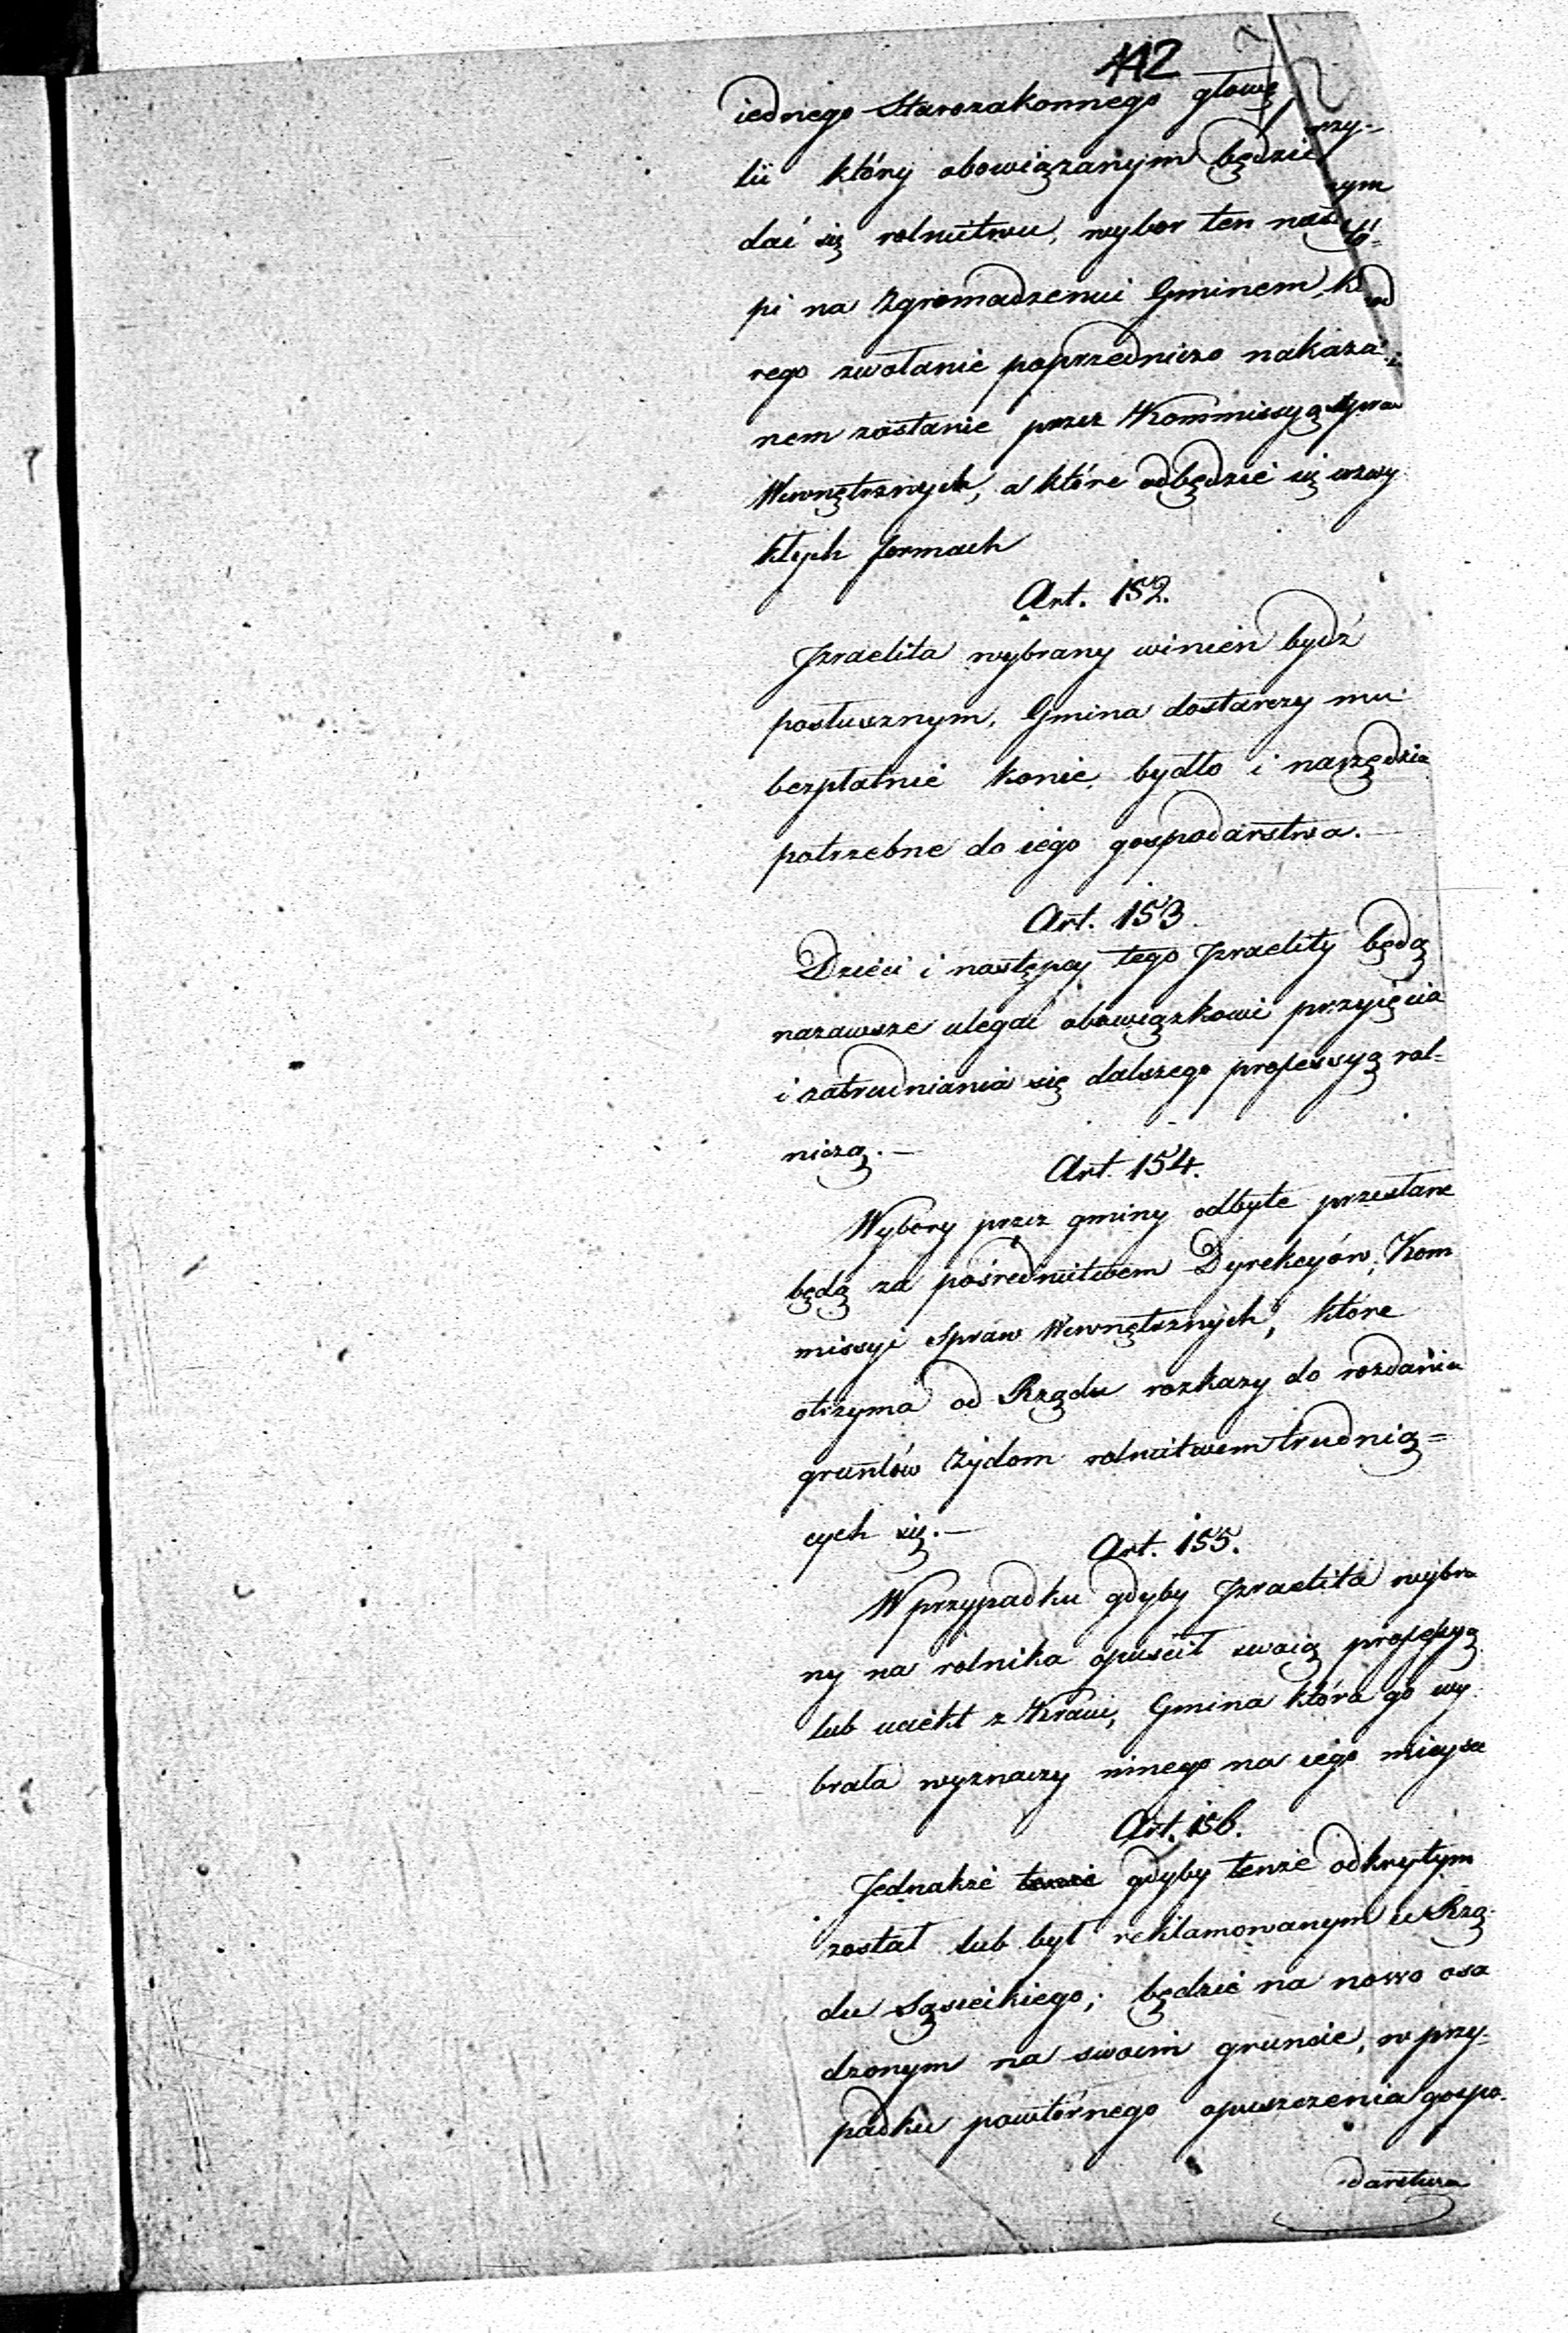 442
iednego Starozakonnego głowę
lii który obowiązanym będzie przy-
dać się rolnictwu, wybor ten nastą-
pi na Zgromadzeniu Gminem, któ-
rego zwołanie poprzedniczo nakaza-
nem zostanie przez Kommissyą Spraw
Wewnętrznych, a które odbędzie się wzwy
kłych formach
Art. 152.
Izraelita wybrany winien bydź
posłusznym, Gmina dostarczy mu
bezpłatnie konie, bydło i narzędzia
potrzebne do iego gospodarstwa.—
Art. 153.
Dzieci i następcy tego Izraelity będą
nazawsze ulegać obowiązkowi przyięcia
i zatrudniania się dalszego professyą rol-
niczą.—
Art. 154.
Wybory przez gminy odbyte przesłane
będą za pośrednictwem Dyrekcyów, Kom
missyi Spraw Wewnętrznych, które
otrzyma od Rządu rozkazy do rozdania
gruntów Żydom rolnictwem trudnią=
cych się.—
Art. 155.
W przypadku gdyby Izraelita wybra
ny na rolnika opuścił swoią professyą
lub uciekł z Kraiu, Gmina która go wy
brała wyznaczy innego na iego mieysce
Art. 156.
Jednakże tenże gdyby tenże odkrytym
został lub był reklamowanym u Rzą-
du Sąsieckiego; będzie na nowo osa
dzonym na swoim gruncie, w przy-
padku powtórnego opuszczenia gospo-
darstwa